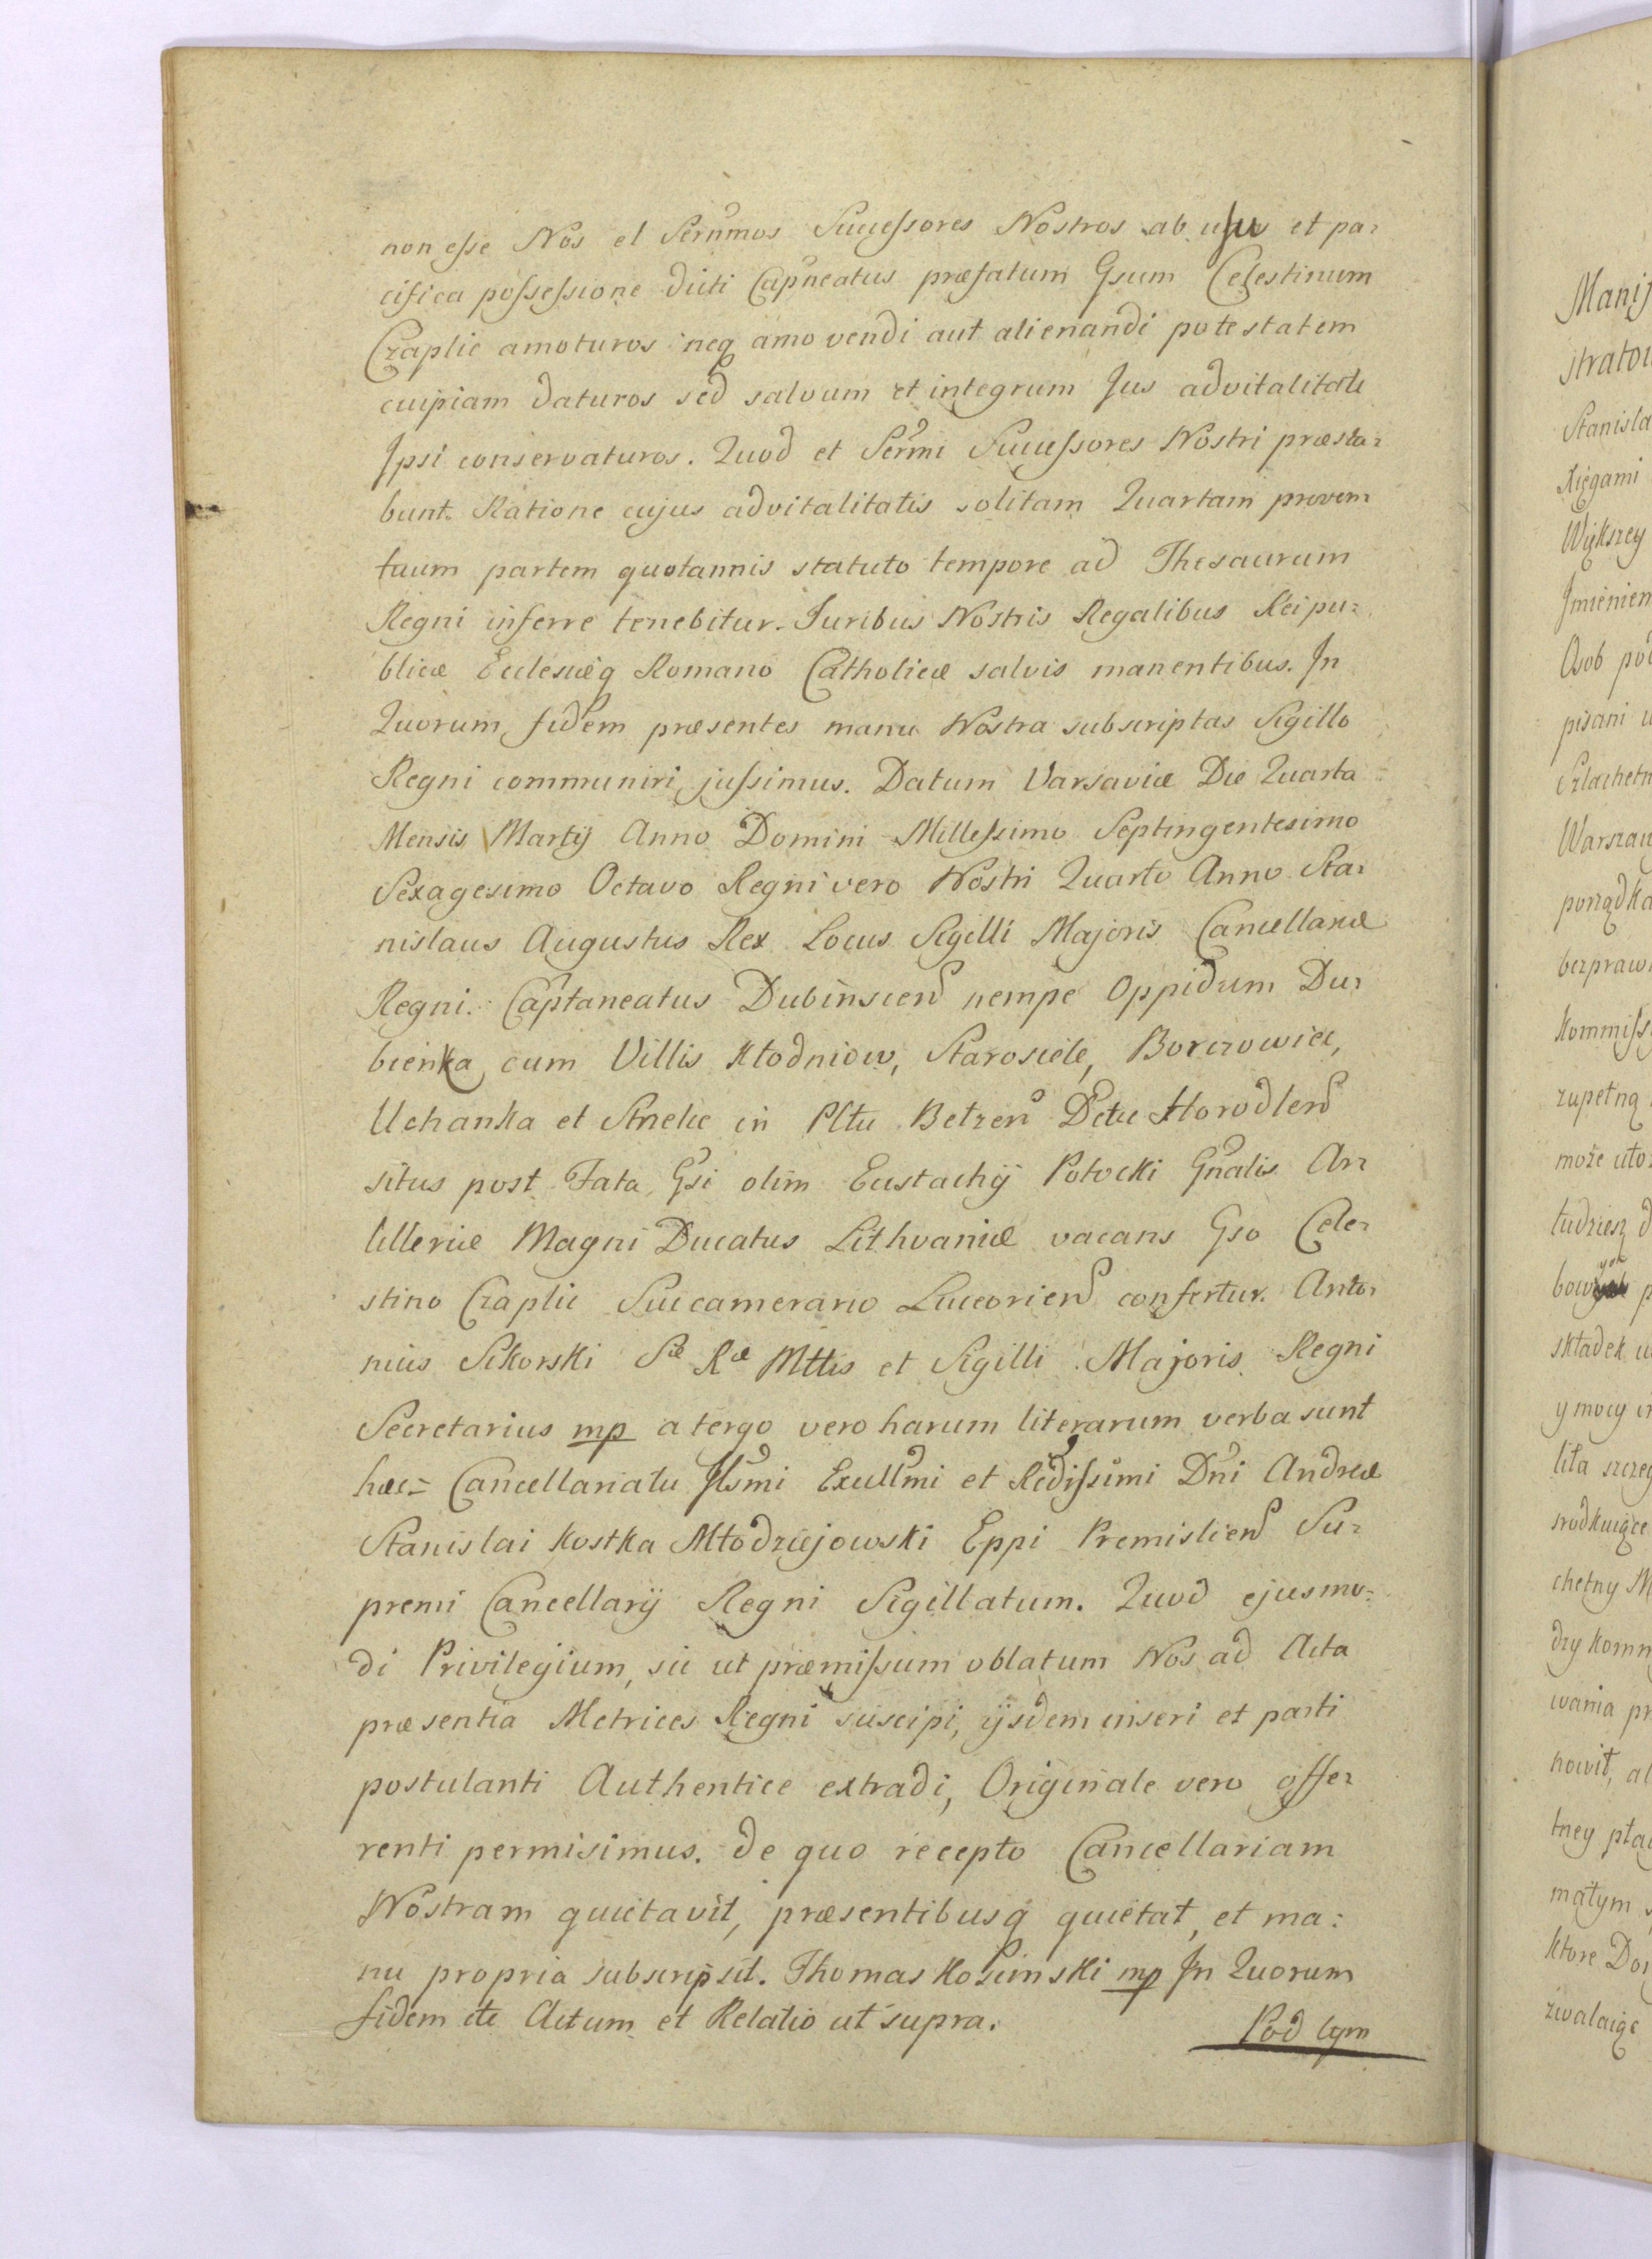 non esse Nos et Sermos Successores Nostros ab usu et pa=
cifica possessione dicti Capneatus præfatum Gsum Celestinum
Czaplic amoturos neq amovendi aut alienandi potestatem
cuipiam daturos sed salvum et integrum Jus advitalitatis
Ipsi conservaturos. Quod et Sermi Successores Nostri præsta=
bunt. Ratione cujus advitalitatis solitam Quartam proven
tuum partem quotannis statuto tempore ad Thesaurum
Regni inferre tenebitur. Juribus Nostris Regalibus Reipu=
blicæ Ecclesiæq Romano Catholicæ salvis manentibus. In
Quorum fidem præsentes manu Nostra subscriptas Sigillo
Regni communiri jussimus. Datum Varsaviæ Die Quarta
Mensis Martij Anno Domini Millessimo Septingentesimo
Sexagesimo Octavo Regni vero Nostri Quarto Anno Sta=
nislaus Augustus Rex Locus Sigilli Majoris Cancellariæ
Regni. Captaneatus Dubinscien nempe Oppidum Du=
bienka cum Villis Kłodniow, Starosiele, Borczowiec,
Uchanka et Strzelce in Pltu Betzen Dctu Horodlen
situs post Fata Gsi olim Eustachij Potocki Gnalis Ar=
tilleriæ Magni Ducatus Lithvaniæ vacans Gso Cele=
stino Czaplic Succamerario Luceorien confertur. Anto=
nius Sikorski Sæ Ræ Mttis et Sigilli Majoris Regni
Secretarius mp a tergo vero harum literarum verba sunt
hæc= Cancellariatu Illsmi Excllmi et Redissimi Dni Andreæ
Stanislai Kostka Młodziejowski Eppi Premislien Su=
premi Cancellarij Regni Sigillatum. Quod ejusmo=
di Privilegium, sic ut præmissum oblatum Nos ad Acta
præsentia Metrices Regni suscipi, ijsdem inseri et parti
postulanti Authentice extradi, Originale vero offe=
renti permisimus. de quo recepto Cancellariam
Nostram quietavit, præsentibusq quietat, et ma=
nu propria subscripsit. Thomas Kosiminski mp In Quorum
fidem etc Actum et Relatio ut supra.
Pod tym
Manif
stratow
Stanisla
Xięgami
Wykszey
Imienien
Osob pod
pisani u
Szlachetn
Warszaw
porządka
bezpraw
kommiss
zupełną
może uło
tudziesz d
bow ych p
składek u
y mocy
lita szczeg
srodkuiące
chetny M
dzy komm
wania pr
nowił, al
tney płac
małym
które Do
zwalaiąc